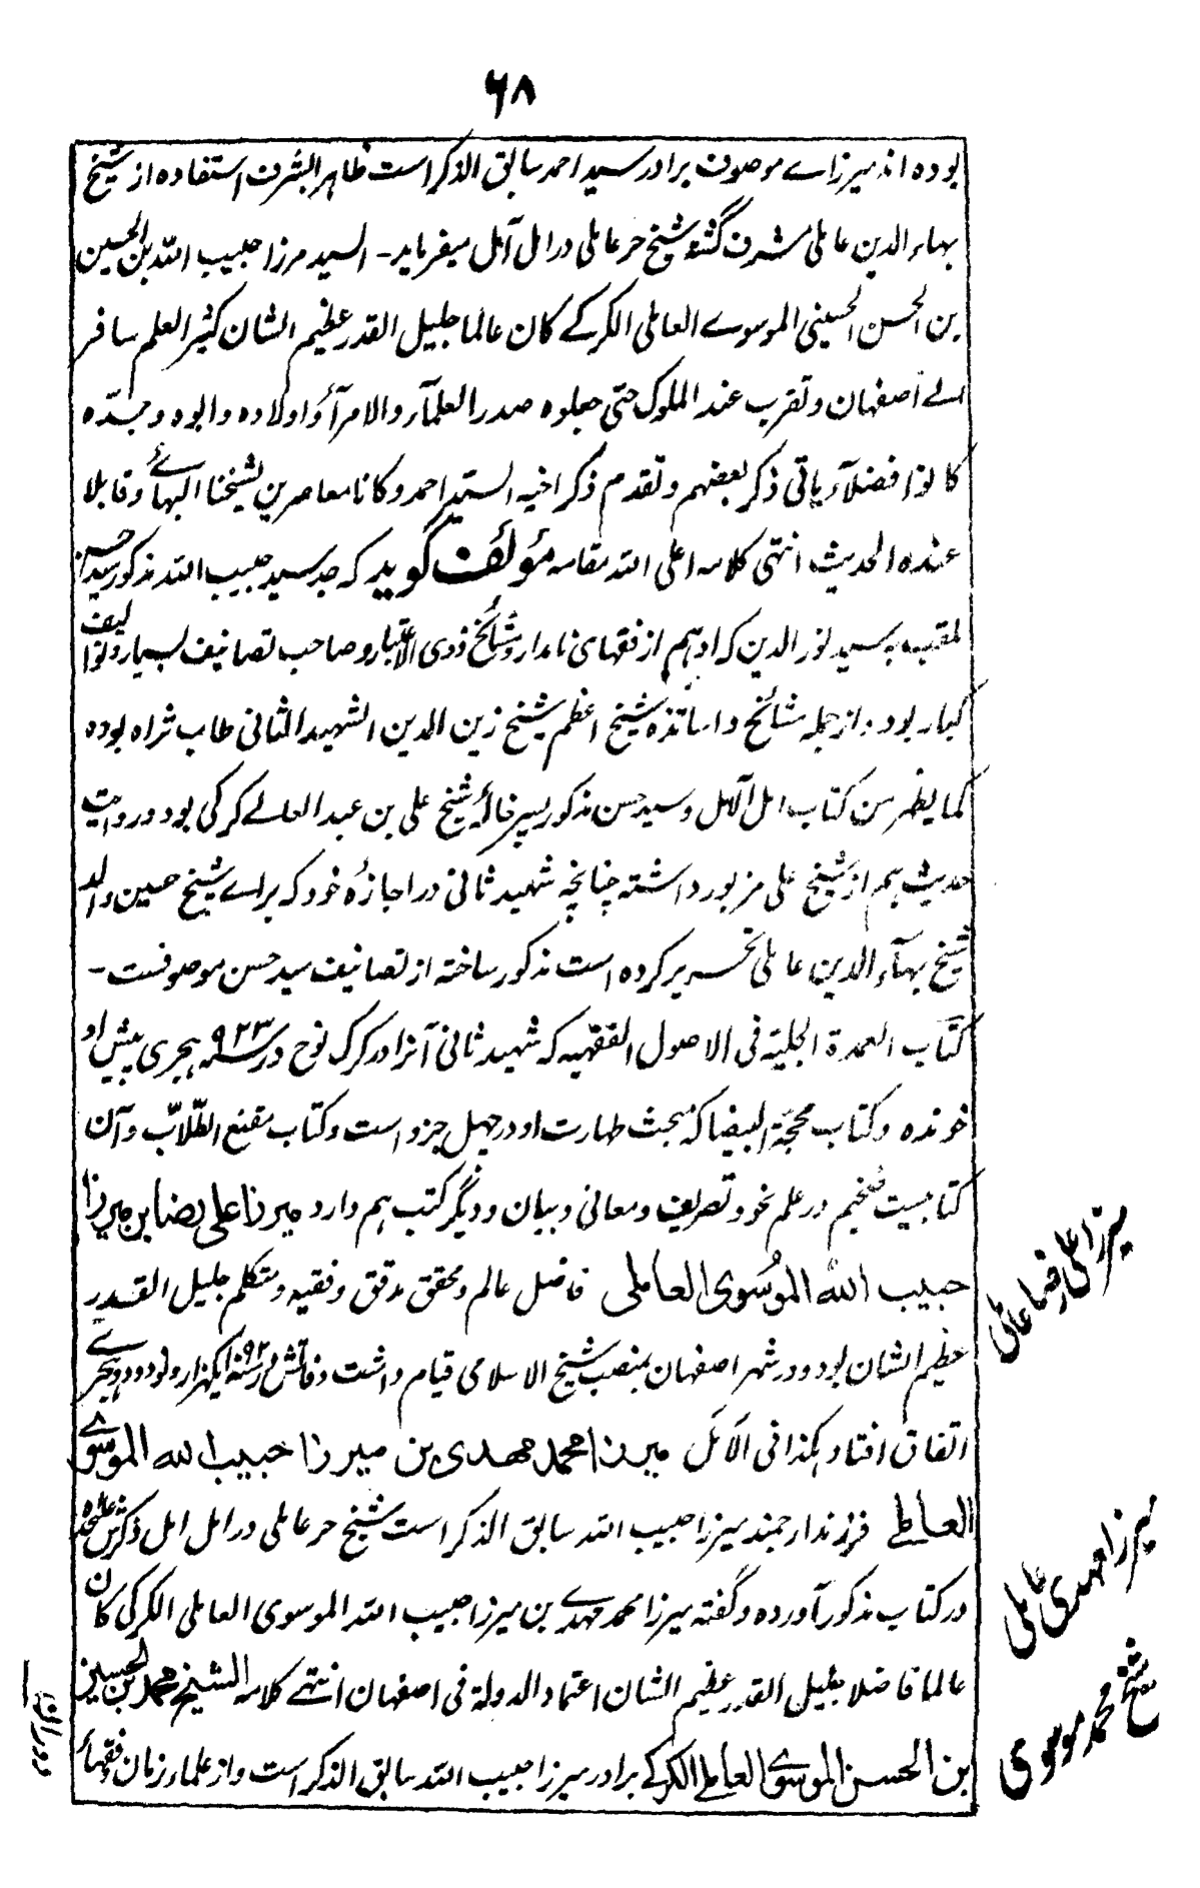 ۶۸
بوده اند میرزاے موصوف برادر سید احمد سابق الذکر است ظاہراً بشرف استفاده از شیخ
بہاء الدین عاملی مشرف گشتہ شیخ حر عاملی در امل آمل میفرماید - السید مرزا حبیب اللہ بن الحسین
بن الحسن الحسینی الموسوے العاملی الکرکے کان عالما جلیل القدر عظیم الشان کثیر العلم سافر
الے اصفہان و تقرب عند الملوک حتی جعلوہ صدر العلمآء والامرآء و اولادہ و ابوہ و جدّہ
کانوا فضلآء یاتی ذکر بعضہم و تقدم ذکر اخیہ السید احمد و کانا معاصرین لشیخنا البہائے و قابلا
عندہ الحدیث انتہی کلامہ اعلی اللہ مقامہ مؤلف گوید کہ جد سید حبیب اللہ مذکور سید حسن
ملقب بہ سید نور الدین کہ او ہم از فقہای نامدار و مشائخ ذوی الاعتبار و صاحب تصانیف بسیار و توالیف
کبار بود . از جملہ مشائخ و اساتذہ شیخ اعظم شیخ زین الدین الشہید الثانی طاب ثراہ بودہ
کما یظہر من کتاب امل الآمل و سید حسن مذکور پسر خالۂ شیخ علی بن عبد العالے کرکی بود و روایت
حدیث ہم از شیخ علی مزبور داشتہ چنانچہ شہید ثانی در اجازۂ خود کہ براے شیخ حسین والد
شیخ بہآء الدین عاملی تحریر کردہ است مذکور ساختہ از تصانیف سید حسن موصوفست -
کتاب العمدة الجلیة فی الاصول الفقہیہ کہ شہید ثانی آنرا در کرک نوح در ۹۳۳ سنہ ہجری پیش او
خوندہ و کتاب محجّة البیضا کہ مبحث طہارت او در چہل جزو است و کتاب مقنع الطّلاب و آن
کتابیست ضخیم در علم نحو و تصریف و معانی و بیان و دیگر کتب ہم دارد میرزا علی رضا بن میرزا
حبیب اللہ الموسوی العاملی فاضل عالم و محقق مدقق و فقیہ و متکلم جلیل القدر
عظیم الشان بود و در شہر اصفہان بمنصب شیخ الاسلامی قیام داشت وفاتش در سنہ ایکہزار و نود و دو ہجرے
اتفاق افتاد ہکذا فی الامل میرزا محمد مہدی بن میرزا حبیب اللہ الموسوے
العاملے فرزند ارجمند میرزا حبیب اللہ سابق الذکر است شیخ حر عاملی در امل امل ذکرش علیحدہ
در کتاب مذکور آوردہ و گفتہ میرزا محمد مہدے بن میرزا حبیب اللہ الموسوی العاملی الکرکی کان
عالما فاضلا جلیل القدر عظیم الشان اعتماد الدولة فی اصفہان انتہے کلامہ الشیخ محمد بن الحسین
بن الحسن الموسوی العاملے الکرکے برادر میرزا حبیب اللہ سابق الذکر است و از علماء زمان و فقہاء
میرزا علی رضا عاملی
میرزا مہدی عاملی
شیخ محمد موسوی
دوران